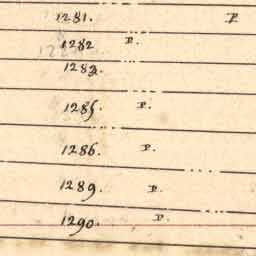 1281. P
1282 P.
1283.
1285. P.
1286. P.
1289. P.
1290. P.